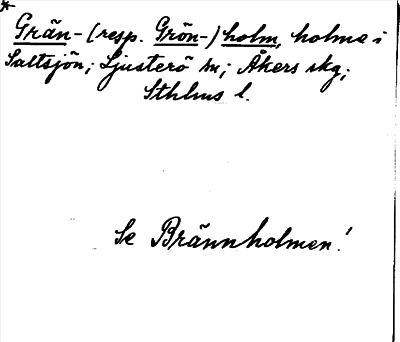 Grän- (resp. Grön-) holm, holme i
Saltsjön; Ljusterö sn; Åkers skg;
Sthlms l.
Se Brännholmen!